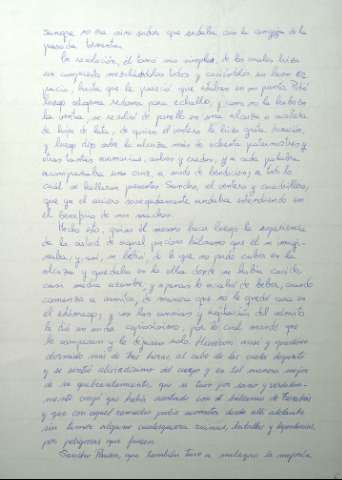 aunque no era sino sudor que sudaba con la congoja de la
pasada tormenta.
En resolución, él tomó sus simples, de los cuales hizo
un compuesto mezclándolos todos y cociéndolos un buen es-
pacio, hasta que le pareció que estaban en su punto. Pidió
luego alguna redoma para echallo, y como no la hubo en
la venta, se resolvió de ponello en una alcuza o aceitera
de hoja de lata, de quien el ventero le hizo grata donación,
y luego dijo sobre la alcuza más de ochenta paternostres y
otras tantas avemarías, salves y credos, y a cada palabra
acompañaba una cruz, a modo de bendición; a todo lo
cual se hallaron presentes Sancho, el ventero y cuadrillero,
que ya el arriero sosegadamente andaba entendiendo en
el beneficio de sus machos.
Hecho esto, quiso él mesmo hacer luego la experiencia
de la virtud de aquel precioso bálsamo que él se imagi-
naba, y, así, se bebió, de lo que no pudo caber en la
alcuza y quedaba en la olla donde se había cocido,
casi media azumbre; y apenas lo acabó de beber, cuando
comenzó a vomitar, de manera que no le quedó cosa en
el estómago; y con las ansias y agitación del vómito
le dio un sudor copiosísimo, por lo cual mandó que
le arropasen y le dejasen solo. Hiciéronlo ansí y quedóse
dormido más de tres horas, al cabo de las cuales despertó
y se sintió aliviadísimo del cuerpo y en tal manera mejor
de su quebrantamiento, que se tuvo por sano y verdadera-
mente creyó que había acertado con el bálsamo de Fierabrás
y que con aquel remedio podía acometer desde allí adelante
sin temor alguno cualesquiera ruinas, batallas y pendencias,
por peligrosas que fuesen.
Sancho Panza, que también tuvo a milagro la mejoría